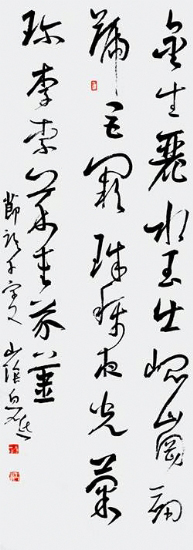 金生麗水玉出崐岡劍
號巨闕珠稱夜光菓
珍李柰菜重芥薑
節録千字文 山陰